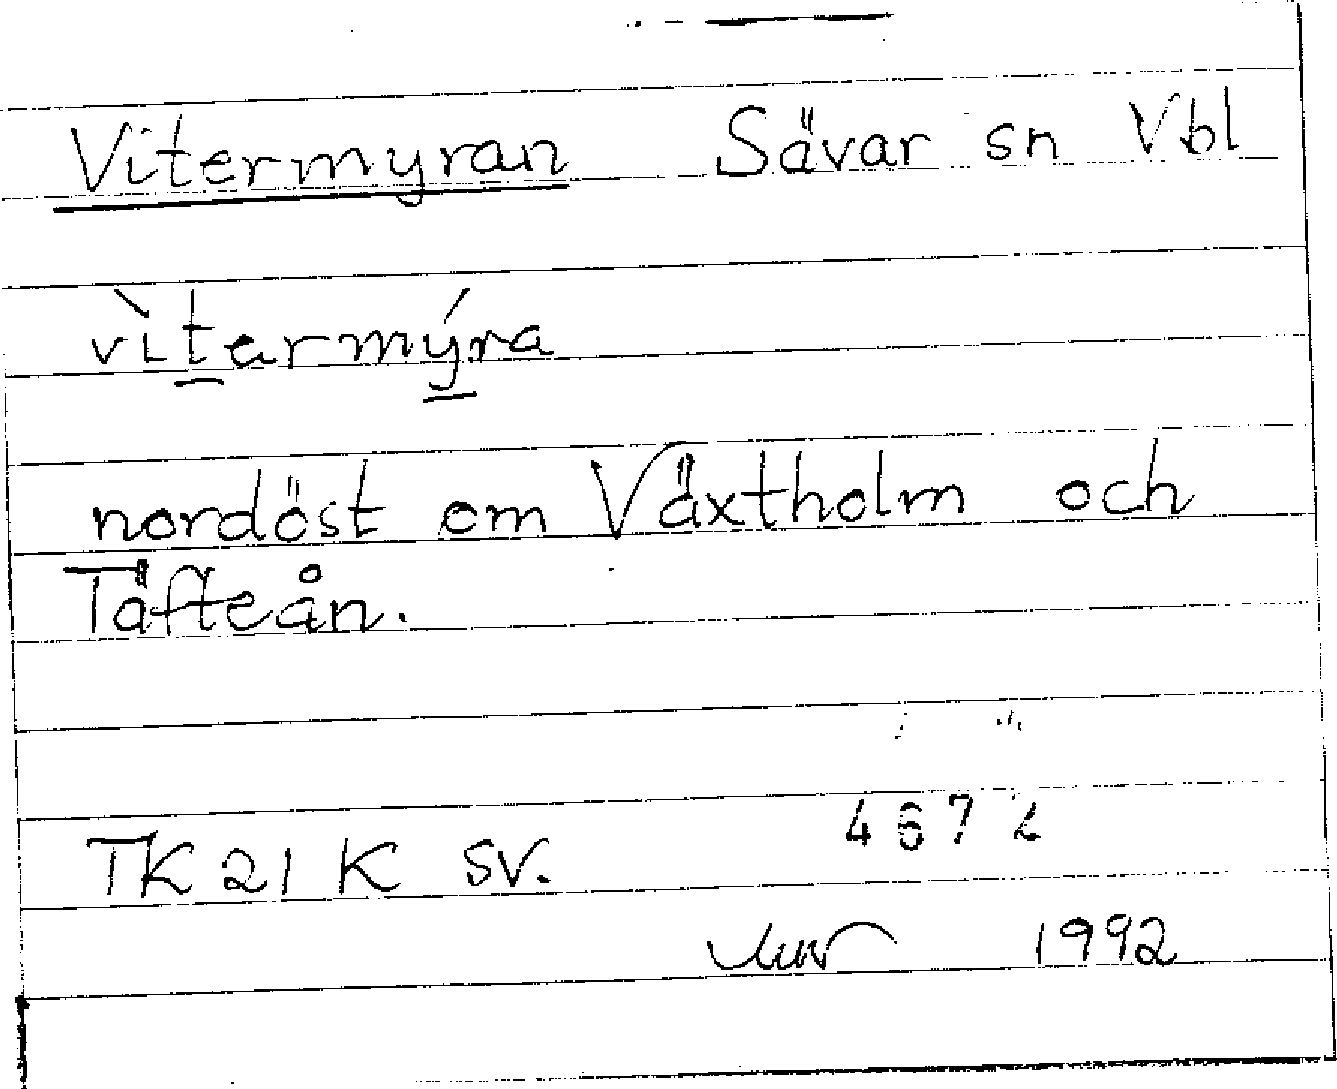 Vitermyran Sävar sn Vbl
vìtermýra
nordöst om Växtholm och
Täfteån.
4672
TK 21 K SV.
1992